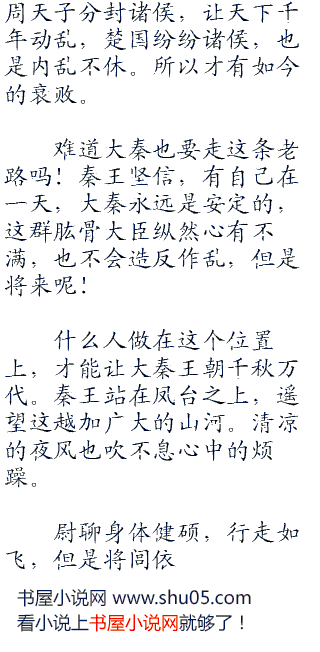 周天子分封诸侯，让天下千
年动乱，楚国纷纷诸侯，也
是内乱不休。所以才有如今
的衰败。
难道大秦也要走这条老
路吗！秦王坚信，有自己在
一天，大秦永远是安定的，
这群肱骨大臣纵然心有不
满，也不会造反作乱，但是
将来呢！
什么人做在这个位置
上，才能让大秦王朝千秋万
代。秦王站在凤台之上，遥
望这越加广大的山河。清凉
的夜风也吹不息心中的烦
躁。
尉聊身体健硕，行走如
飞，但是将闾依
书屋小说网 www.shu05.com
看小说上书屋小说网就够了！